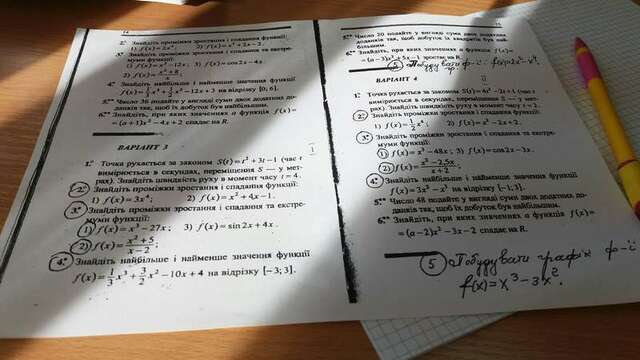 14
2.° Знайдіть проміжки зростання і спадання функції:
1) f(x) = 2x⁴; 2) f(x) = x² + 2x − 2.
3.° Знайдіть проміжки зростання і спадання та екстремуми функції:
1) f(x) = x³ − 12x; 3) f(x) = cos 2x − 4x.
2) f(x) =
4.° Знайдіть найбільше і найменше значення функції
на відрізку [0; 6].
5.** Число 36 подайте у вигляді суми двох додатних доданків так, щоб їх добуток був найбільшим.
6.** Знайдіть, при яких значеннях a функція f(x) =
= (a + 1)x³ − 4x + 2 спадає на R.
ВАРІАНТ 3
1.° Точка рухається за законом S(t) = t² + 3t − 1 (час t
вимірюється в секундах, переміщення S — у метрах). Знайдіть швидкість руху в момент часу t = 4.
2.° Знайдіть проміжки зростання і спадання функції:
1) f(x) = 3x⁴; 2) f(x) = x² + 4x − 1.
3.° Знайдіть проміжки зростання і спадання та екстремуми функції:
1) f(x) = x³ − 27x; 3) f(x) = sin 2x + 4x.
2) f(x) = (x² + 5)/(x − 2);
4.° Знайдіть найбільше і найменше значення функції
f(x) = 1/3 x³ + 3/2 x² − 10x + 4 на відрізку [−3; 3].
5.** Число 20 подайте у вигляді суми двох додатних
доданків так, щоб добуток їх квадратів був найбільшим.
6.** Знайдіть, при яких значеннях a функція f(x) =
= (a − 3)x³ + 5x − 1 зростає на R.
5 Побудувати
ВАРІАНТ 4
1.° Точка рухається за законом
вимірюється в секундах, переміщення S — у метрах). Знайдіть швидкість руху в момент часу t = 2.
2.° Знайдіть проміжки зростання і спадання функції:
2) f(x) = x² − 2x + 2.
3.° Знайдіть проміжки зростання і спадання та екстремуми функції:
1) f(x) = x³ − 48x; 3) f(x) = cos 2x − 3x.
2) f(x) = (x² − 2,5x)/(x + 2);
4.° Знайдіть найбільше і найменше значення функції
f(x) = 3x² − x³ на відрізку [−1; 3].
5.** Число 48 подайте у вигляді суми двох додатних доданків так, щоб їх добуток був найбільшим.
6.** Знайдіть, при яких значеннях a функція f(x) =
= (a − 2)x³ − 3x − 2 спадає на R.
5 Побудувати графік ф-ії
f(x) = x³ − 3x².